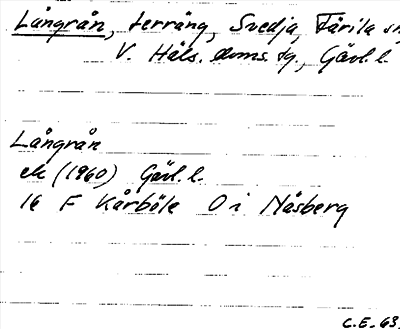 Långrån, terräng, Svedja, Färila sn,
V. Häls. doms. tg., Gävl. l.
Långrån
ek (1960) Gävl. l.
16 F Kårböle O i Näsberg
C.E. 63.